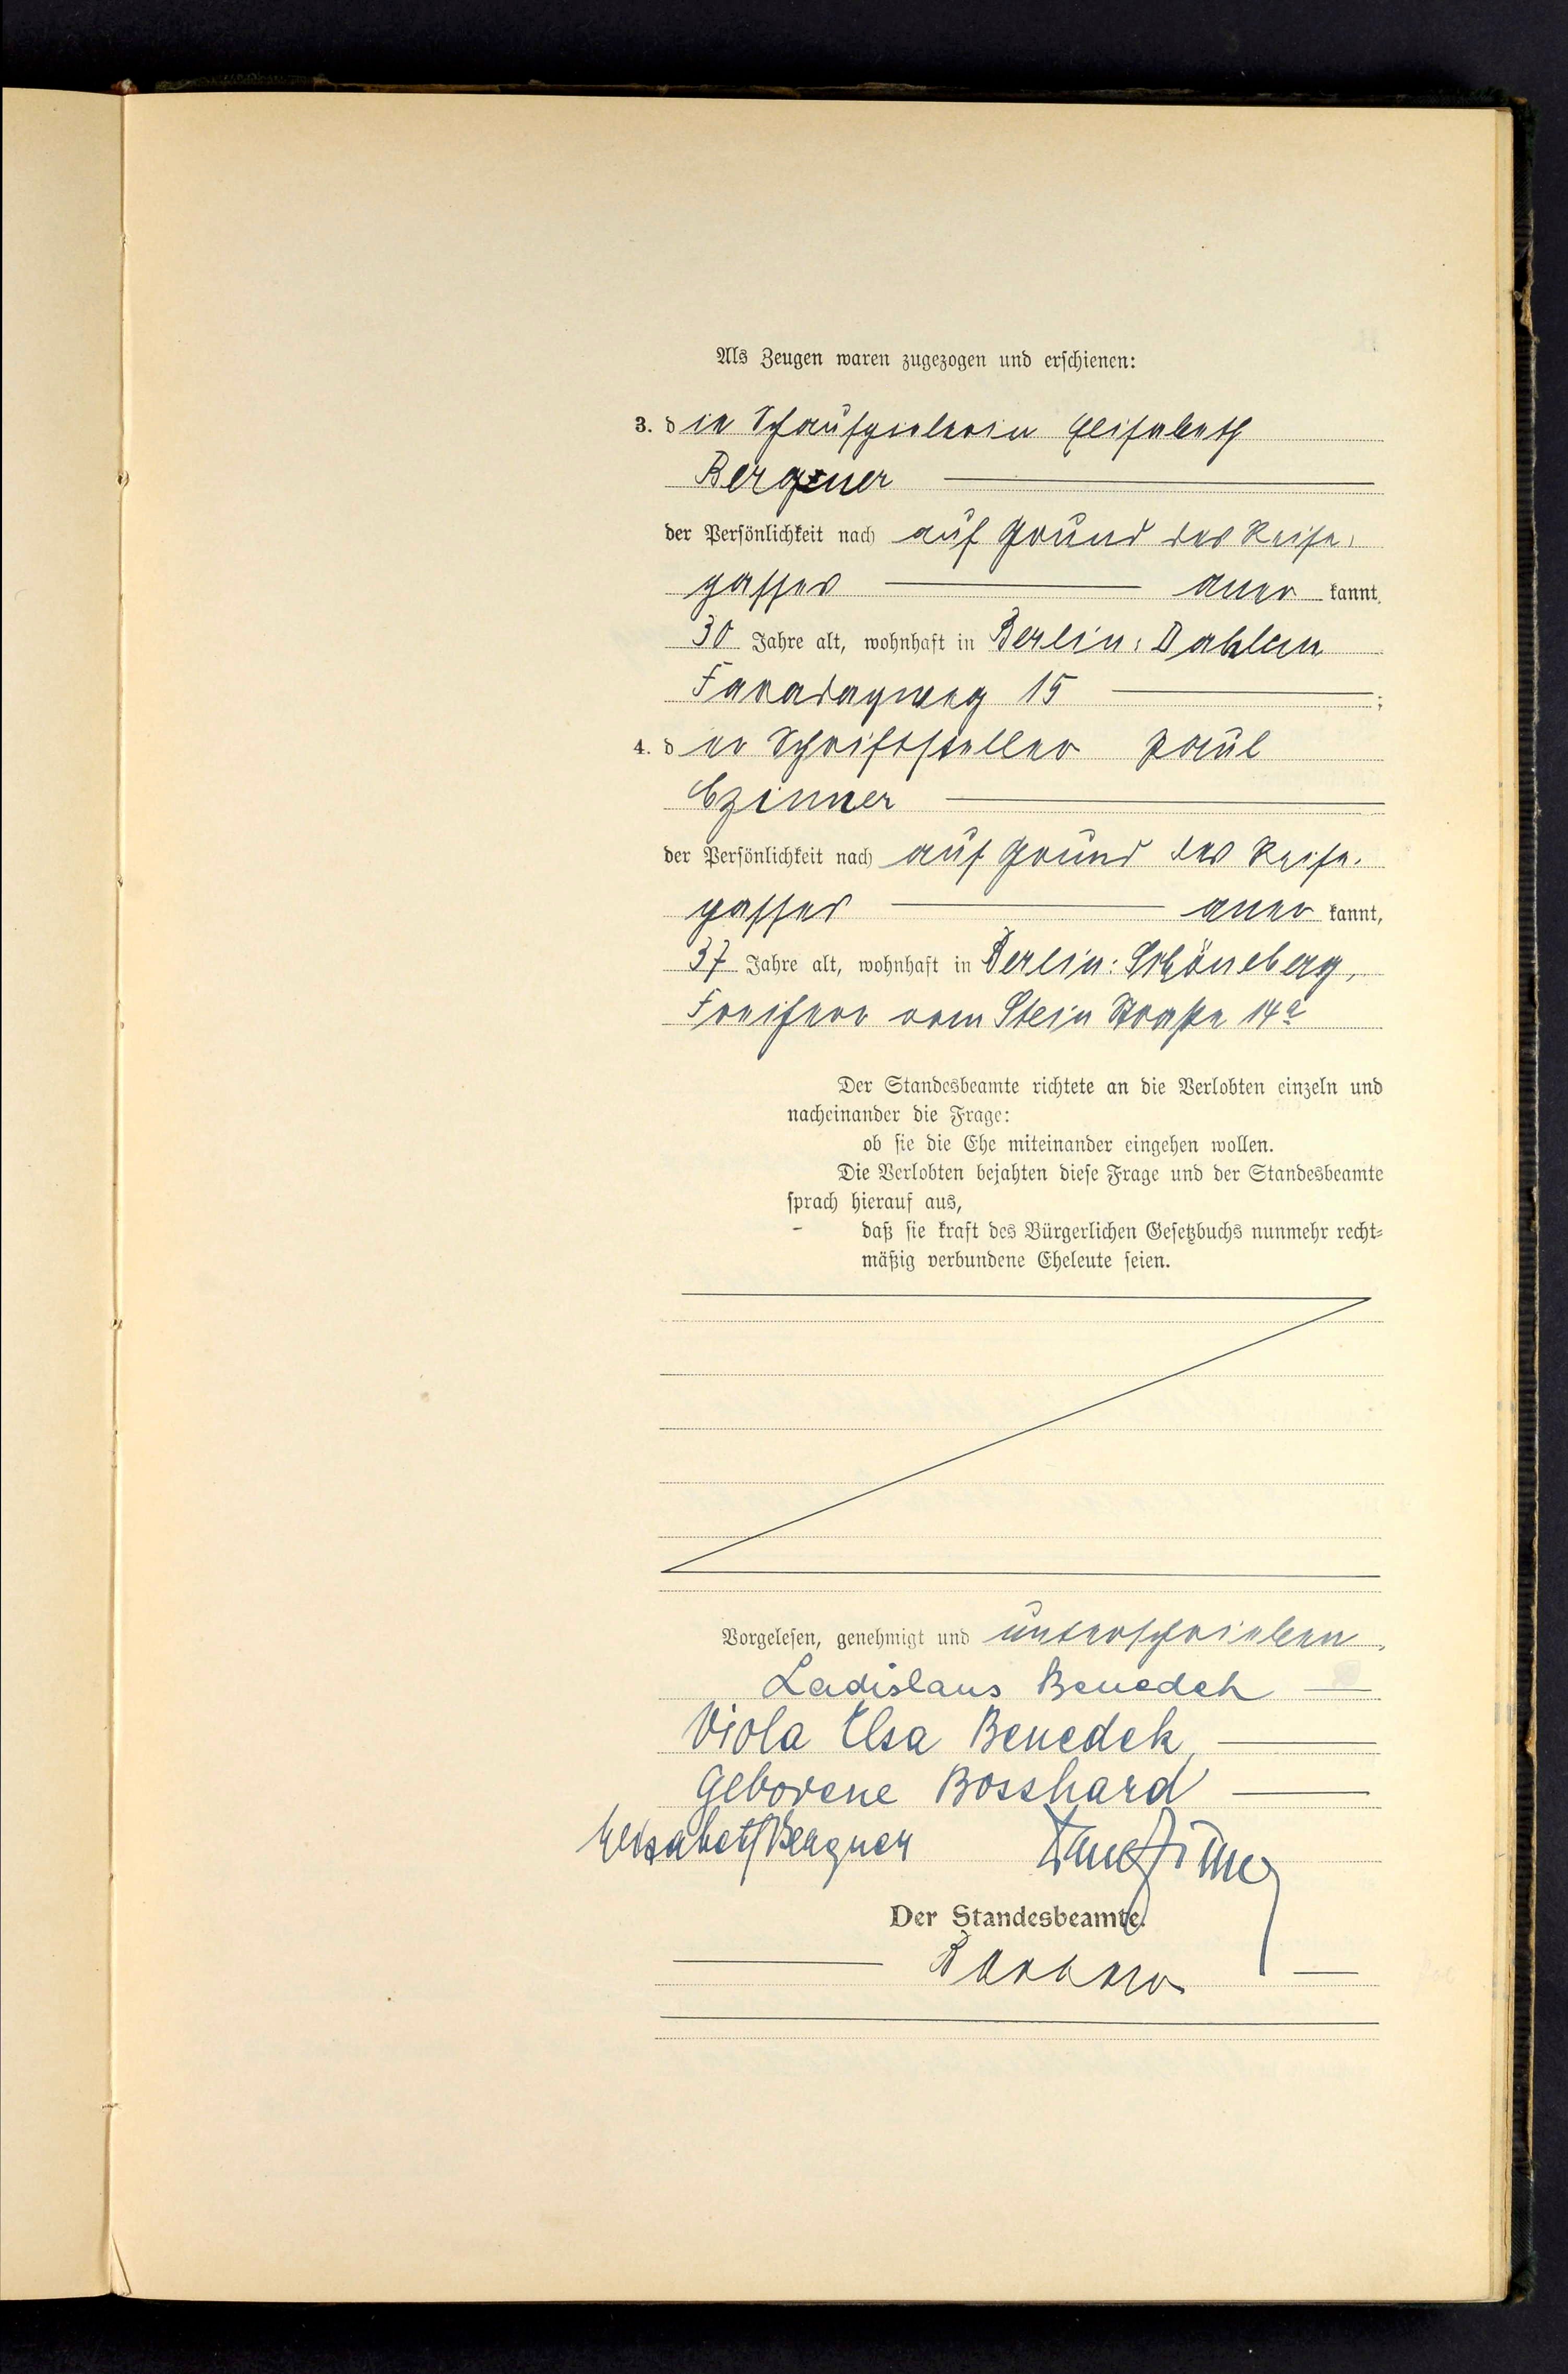 Als Zeugen waren zugezogen und erschienen:
3. die Schauspielerin Elisabeth
Bergner
der Persönlichkeit nach auf Grund des Reise-
passes aner kannt,
30 Jahre alt, wohnhaft in Berlin-Dahlem
Faradayweg 15 ;
4. der Schriftsteller Paul
Czinner
der Persönlichkeit nach auf Grund des Reise-
passes aner kannt,
37 Jahre alt, wohnhaft in Berlin-Schöneberg,
Freiherr vom Stein Straße 14a
Der Standesbeamte richtete an die Verlobten einzeln und
nacheinander die Frage:
ob sie die Ehe miteinander eingehen wollen.
Die Verlobten bejahten diese Frage und der Standesbeamte
sprach hierauf aus,
daß sie kraft des Bürgerlichen Gesetzbuchs nunmehr recht-
mäßig verbundene Eheleute seien.
Vorgelesen, genehmigt und unterschrieben.
Ladislaus Benedek
Viola Elsa Benedek,
geborene Bosshard
Elisabeth Bergner Paul Czinner
Der Standesbeamte.